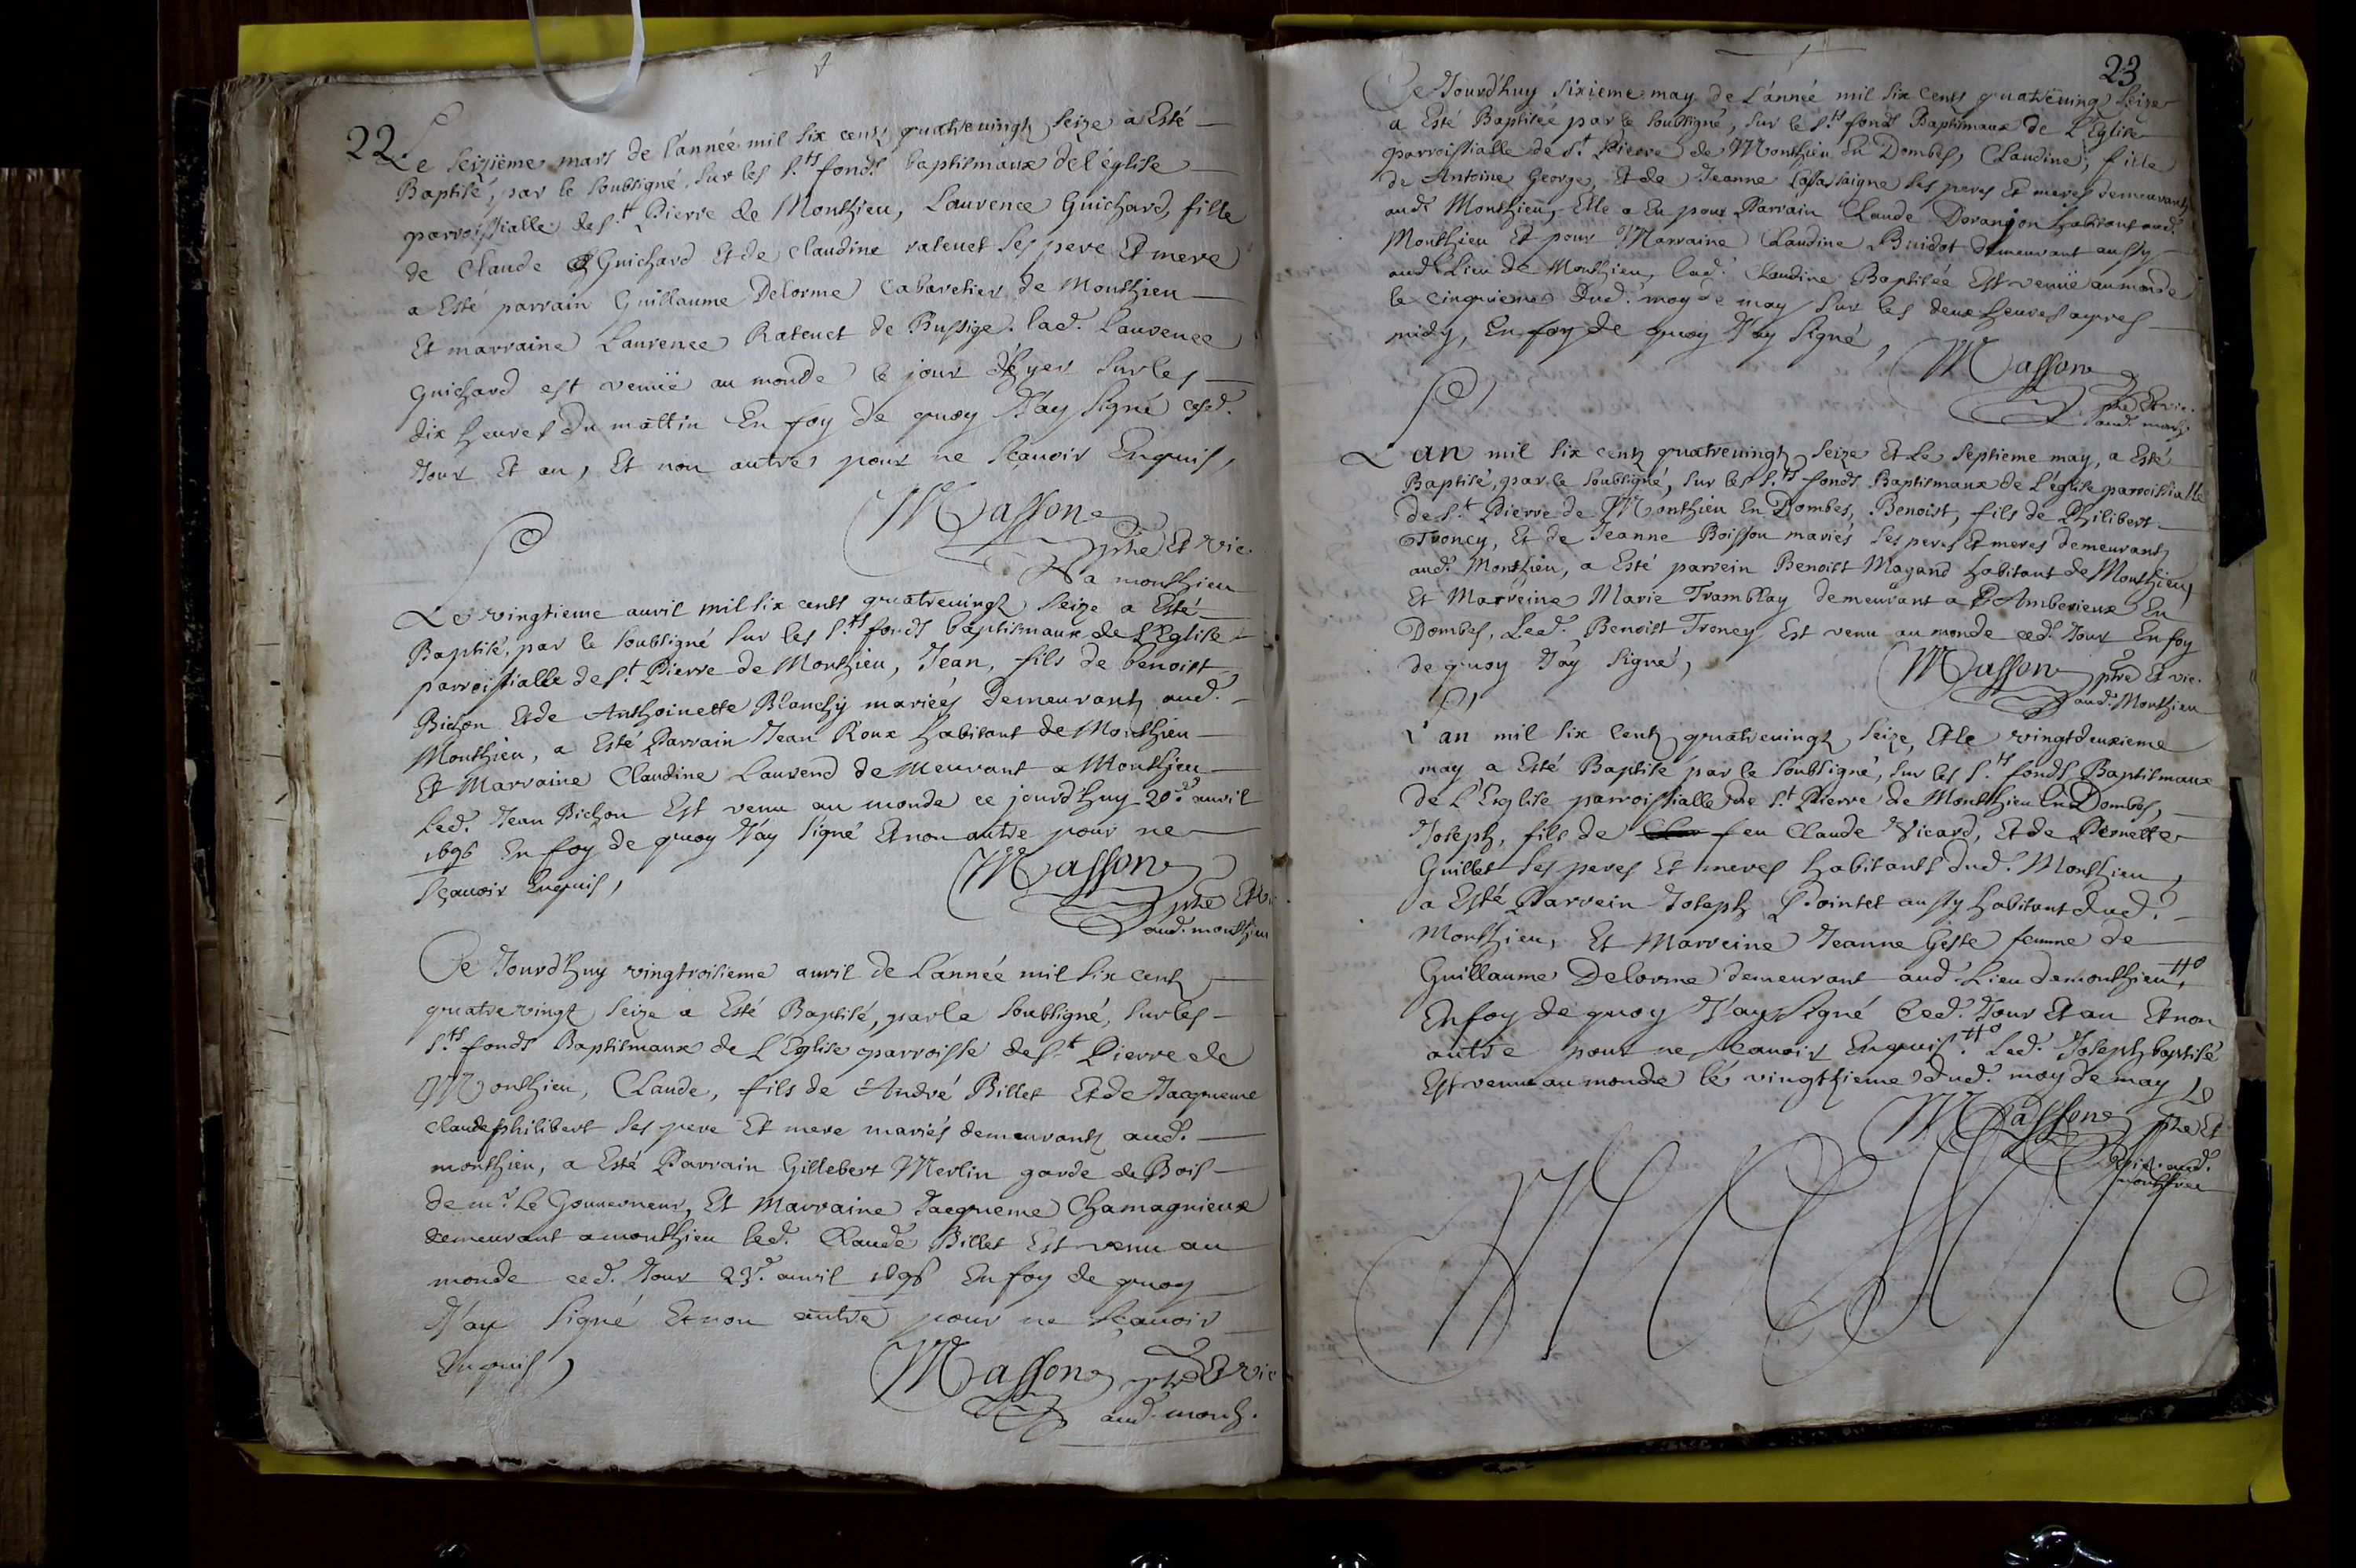 22.
Le seizième mars de l'année mil six centz quatrevingtz seize a Esté
Baptisé, par le soubsigné, sur les S.ts fonds baptismaux de l'église
parroissialle de S.t Pierre de Monthieu, Laurence Guichard, fille
de Claude Guichard Et de Claudine ratenet ses pere Et mere
a Esté parrain Guillaume Delorme Cabaretier de Monthieu
Et marraine Laurence Ratenet de Bussige. lad. Laurence
Guichard est venuë au monde le jour d'hyer sur les
dix heures du mattin En foy de quoy J'ay signé ced.
Jour Et an, Et non autres pour ne sçavoir Enquis,
Masson
ptre Et vic.
a monthieu
Le vingtieme auril mil six cents quatrevingtz seize a Esté
Baptisé, par le soubsigné sur les S.ts fonds baptismaux de L'Eglise
parroissialle de S.t Pierre de Monthieu, Jean, fils de benoist
Bichon Et de Anthoinette Blanchy mariés demeurantz aud.
Monthieu, a Esté Parrain Jean Roux habitant de Monthieu
Et Marraine Claudine Laurend demeurant a Monthieu
Led. Jean Bichon Est venu au monde ce jourd'huy 20.e auril
1696 En foy de quoy J'ay signé Et non autre pour ne
sçavoir Enquis,
Masson
ptre Et vi
aud. monthieu
Ce Jourd'huy vingtroisieme auril de L'année mil six centz
quatrevingtz seize a Esté Baptisé, par le soubsigné, sur les
S.ts fonds Baptismaux de L'Eglise parroisse de S.t Pierre de
Monthieu, Claude, fils de André Billet Et de Jacqueme
Claudephilibert ses pere Et mere mariés demeurantz aud.
monthieu, a Esté Parrain Gillebert Merlin garde de Bois
de m.r Le Gouuerneur, Et Marraine Jacqueme Chamagnieux
demeurant a monthieu led. Claude Billet Est venu au
monde ced. Jour 23.e auril 1696 En foy de quoy
J'ay signé Et non autre pour ne sçauoir
Enquis,
Masson ptre Et vic
aud. month.
23
Ce Jourd'huy sixieme may de L'année mil six Cents quatrevingtz seize
a Esté Baptiséé par le soubsigné, sur les S.ts fonds Baptismaux de L'Eglise
parroissialle de S.t Pierre de Monthieu En Dombes, Claudine, fille
de Antoine George, Et de Jeanne ses peres Et meres demeurantz
aud. Monthieu, Elle a Eu pour Parrain Claude Doranjon habitant aud.
Monthieu Et pour Marraine Claudine Buidot demeurant aussy
aud. Lieu de Monthieu, lad. Claudine Baptiséé Est venuë au monde
le cinquieme dud. moy de may sur les deux heures apres
midy, En foy de quoy J'ay signé,
Masson
ptre Et vic.
aud. month.
L'an mil six centz quatrevingtz seize Et Le septieme may, a Esté
Baptisé, par le soubsigné, sur les S.ts fonds Baptismaux de L'église parroissialle
de S.t Pierre de Monthieu En Dombes, Benoist, fils de Philibert
Troncy, Et de Jeanne Boisson mariés ses peres Et meres demeurantz
aud. Monthieu, a Esté parrein Benoist Magand habitant de Monthieu
Et Marreine Marie Tramblay demeurant a Amberieux En
Dombes, Led. Benoist Troncy Est venu au monde ced. Jour En foy
de quoy J'ay signé,
Masson ptre Et vic.
aud. Monthieu
L'an mil six Centz quatrevingtz seize, Et le vingtdeuxieme
may a Esté Baptisé par le soubsigné, sur les S.ts fonds Baptismaux
de L'Esglise parroissialle de S.t Pierre de Monthieu En Dombes,
Joseph, fils de feu Claude Vicard, Et de Pernette
Guillet ses peres Et meres habitants dud. Monthieu,
a Esté Parrein Joseph Pointet aussy habitant dud.
Monthieu, Et Marreine Jeanne Geste femme de
Guillaume Delorme demeurant aud. Lieu de monthieu,
En foy de quoy J'ay signé Ced. Jour Et an Et non
autre pour ne sçauoir Enquis. Led. Joseph baptisé
Est venu au monde le vingthieme dud. moy de may
Masson ptre Et
vic. aud.
monthieu